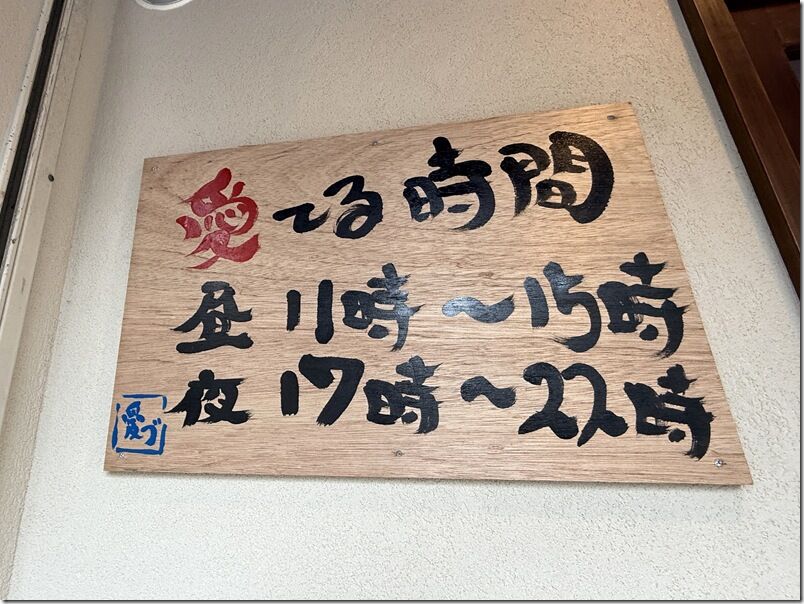 愛てる時間
昼 11時～15時
夜 17時～22時